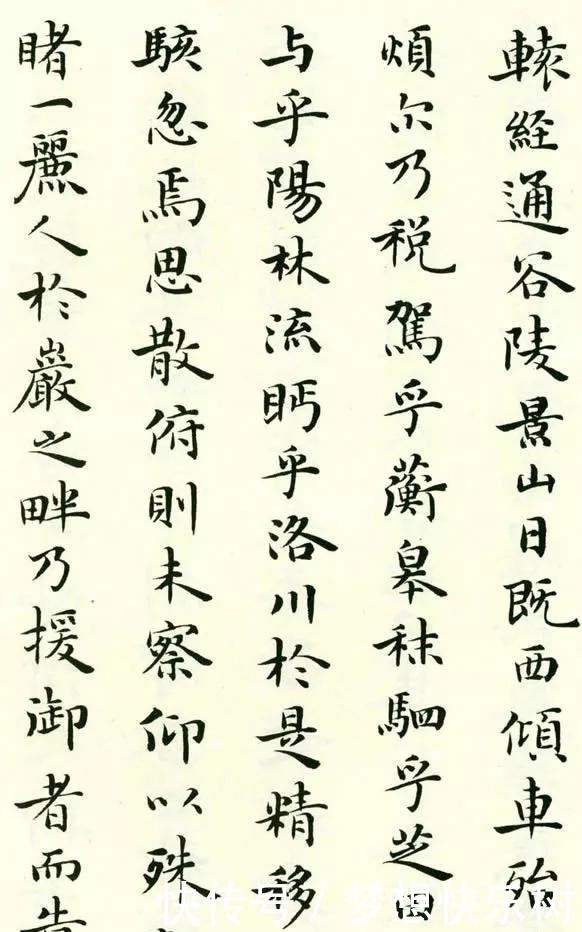 轅經通谷陵景山日既西傾車殆
煩尔乃税駕乎蘅皋秣駟乎芝
与乎陽林流眄乎洛川於是精移
駭忽焉思散俯則未察仰以殊
睹一麗人於巖之畔乃援御者而告
快传号/梦想快乐树